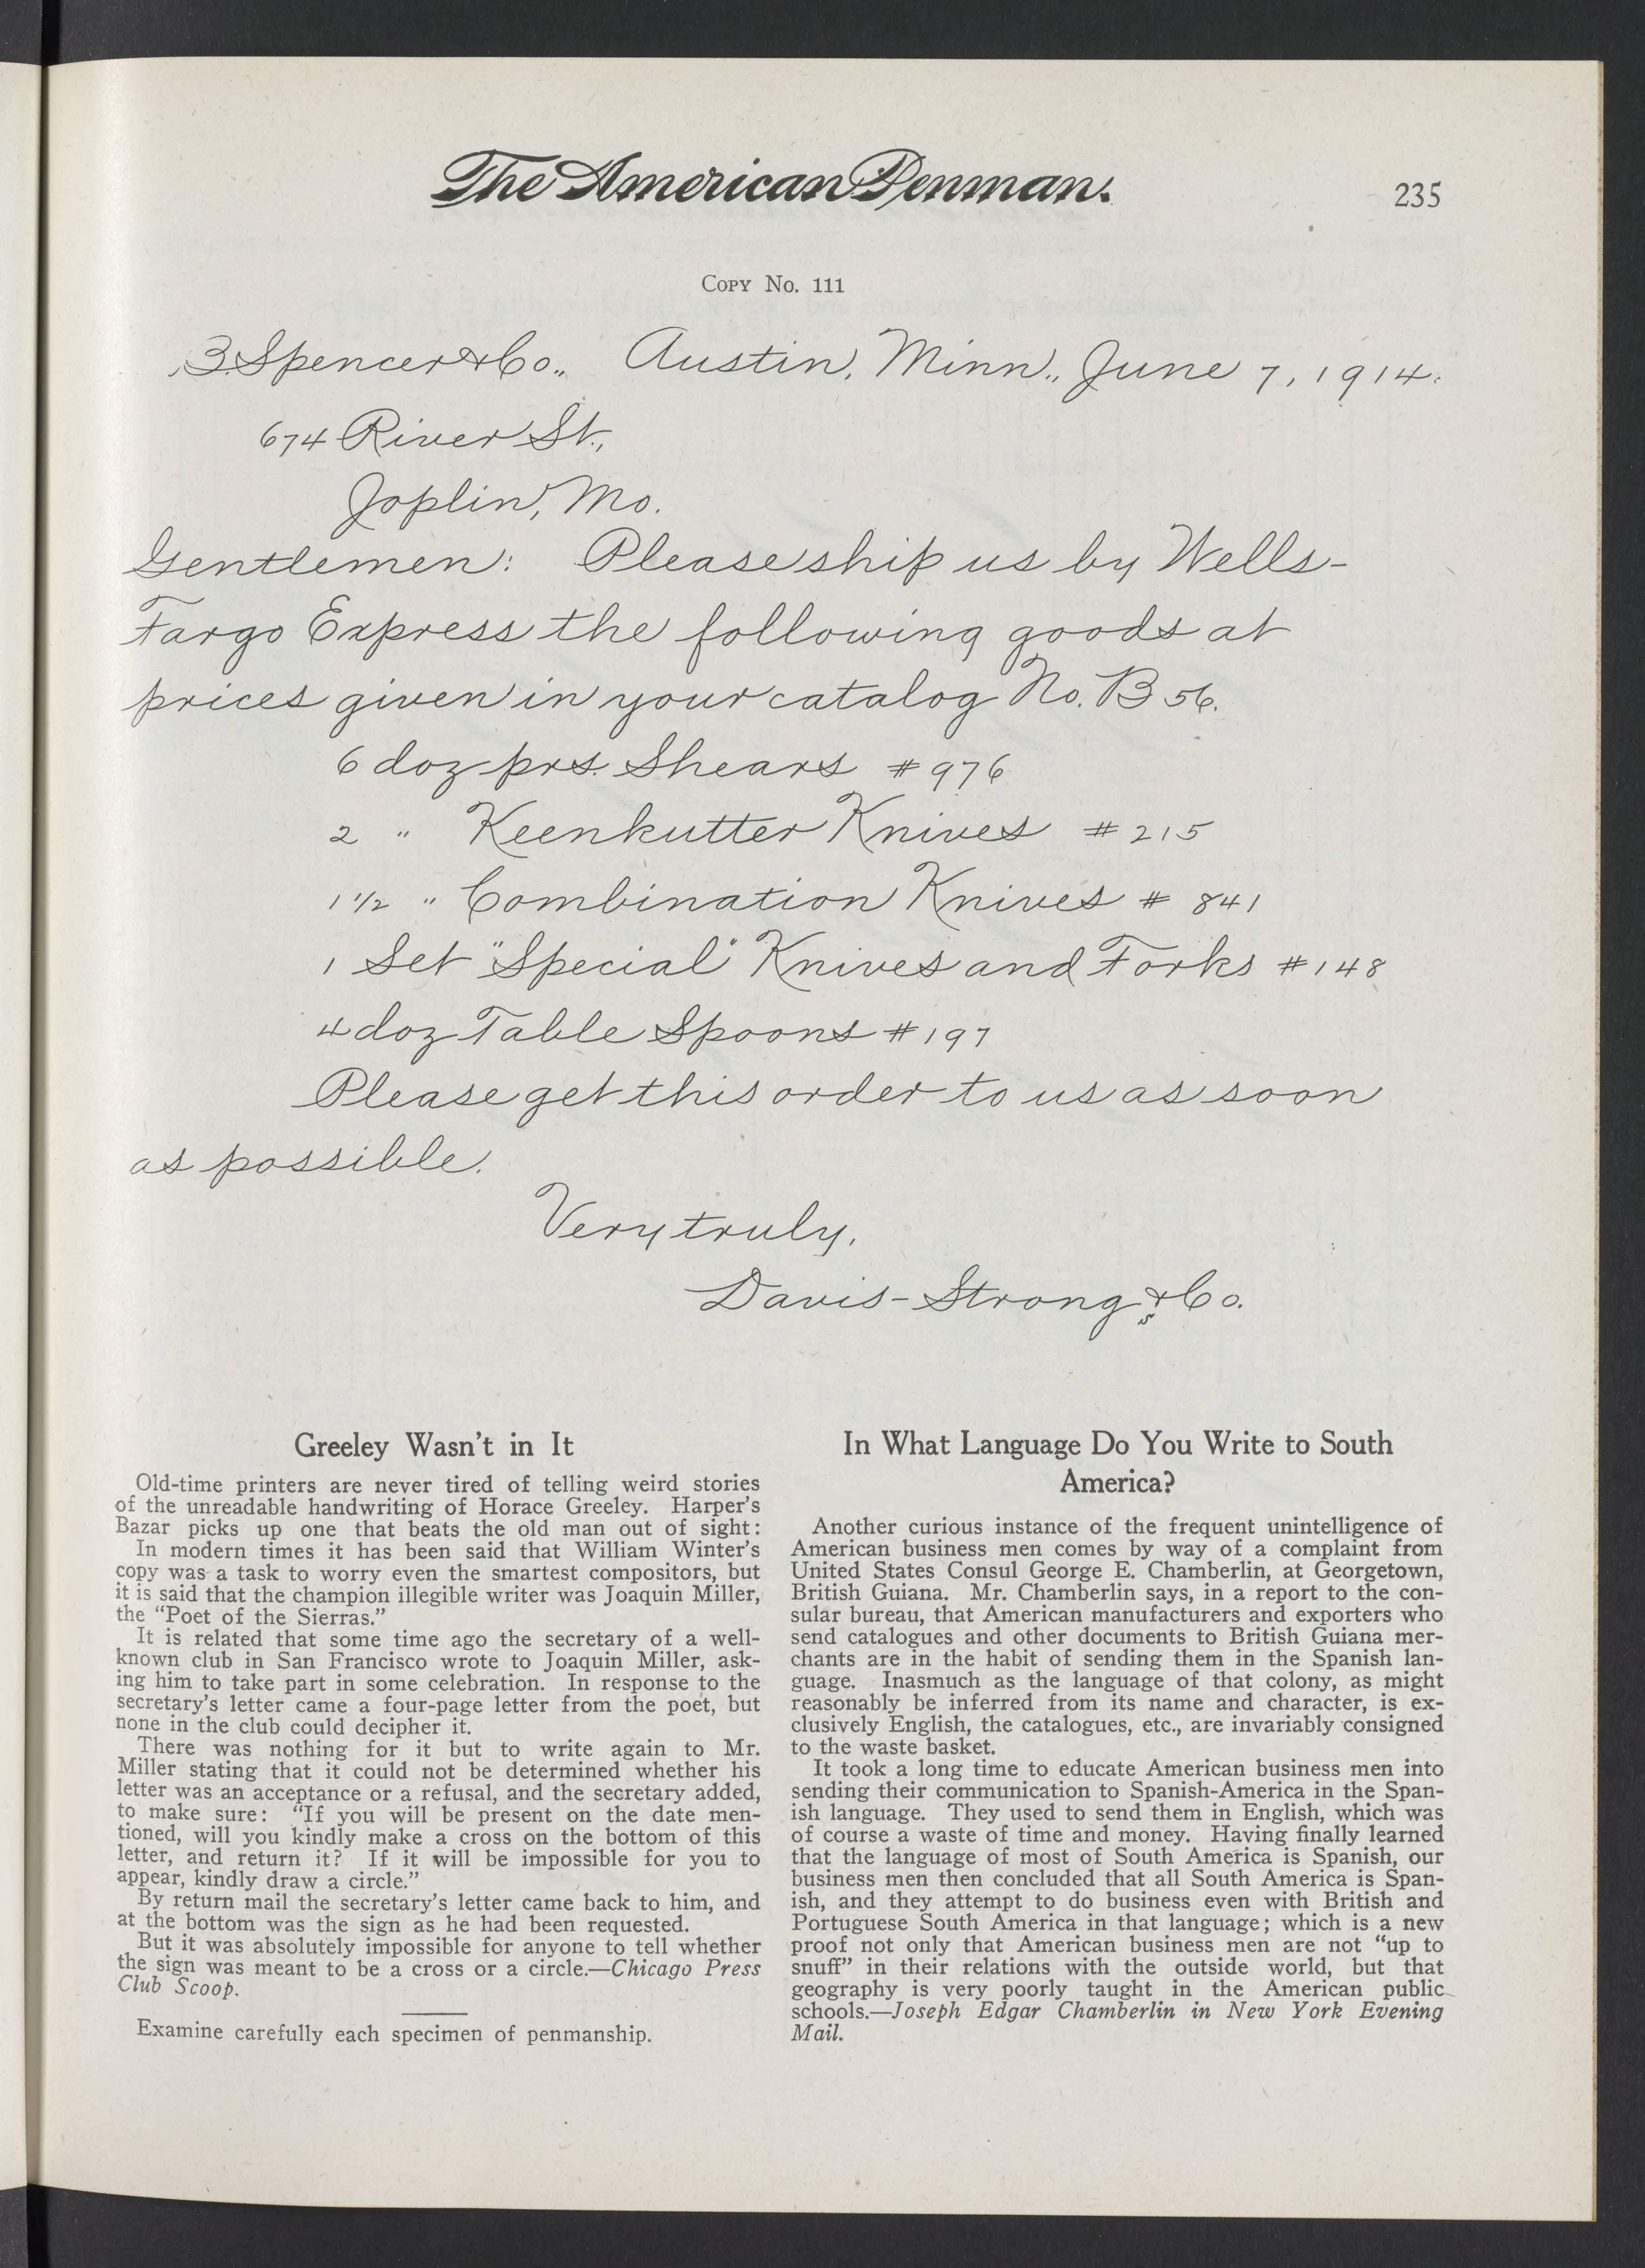 The American Penman.
235
Copy No. 111
B. Spencer & Co., Austin, Minn., June 7, 1914.
674 River St.,
Joplin, Mo.
Gentlemen: Please ship us by Wells-
Fargo Express the following goods at
prices given in your catalog No. B 56.
6 doz prs. Shears #976
2 " Keenkutter Knives #215
1 1/2 " Combination Knives # 841
1 Set "Special" Knives and Forks #148
4 doz Table Spoons #197
Please get this order to us as soon
as possible.
Very truly,
Davis-Strong & Co.
s
Greeley Wasn't in It
Old-time printers are never tired of telling weird stories
of the unreadable handwriting of Horace Greeley. Harper's
Bazar picks up one that beats the old man out of sight:
In modern times it has been said that William Winter's
copy was a task to worry even the smartest compositors, but
it is said that the champion illegible writer was Joaquin Miller,
the "Poet of the Sierras."
It is related that some time ago the secretary of a well-
known club in San Francisco wrote to Joaquin Miller, ask-
ing him to take part in some celebration. In response to the
secretary's letter came a four-page letter from the poet, but
none in the club could decipher it.
There was nothing for it but to write again to Mr.
Miller stating that it could not be determined whether his
letter was an acceptance or a refusal, and the secretary added,
to make sure: "If you will be present on the date men-
tioned, will you kindly make a cross on the bottom of this
letter, and return it? If it will be impossible for you to
appear, kindly draw a circle."
By return mail the secretary's letter came back to him, and
at the bottom was the sign as he had been requested.
But it was absolutely impossible for anyone to tell whether
the sign was meant to be a cross or a circle.—Chicago Press
Club Scoop.
Examine carefully each specimen of penmanship.
In What Language Do You Write to South
America?
Another curious instance of the frequent unintelligence of
American business men comes by way of a complaint from
United States Consul George E. Chamberlin, at Georgetown,
British Guiana. Mr. Chamberlin says, in a report to the con-
sular bureau, that American manufacturers and exporters who
send catalogues and other documents to British Guiana mer-
chants are in the habit of sending them in the Spanish lan-
guage. Inasmuch as the language of that colony, as might
reasonably be inferred from its name and character, is ex-
clusively English, the catalogues, etc., are invariably consigned
to the waste basket.
It took a long time to educate American business men into
sending their communication to Spanish-America in the Span-
ish language. They used to send them in English, which was
of course a waste of time and money. Having finally learned
that the language of most of South America is Spanish, our
business men then concluded that all South America is Span-
ish, and they attempt to do business even with British and
Portuguese South America in that language; which is a new
proof not only that American business men are not "up to
snuff" in their relations with the outside world, but that
geography is very poorly taught in the American public
schools.—Joseph Edgar Chamberlin in New York Evening
Mail.